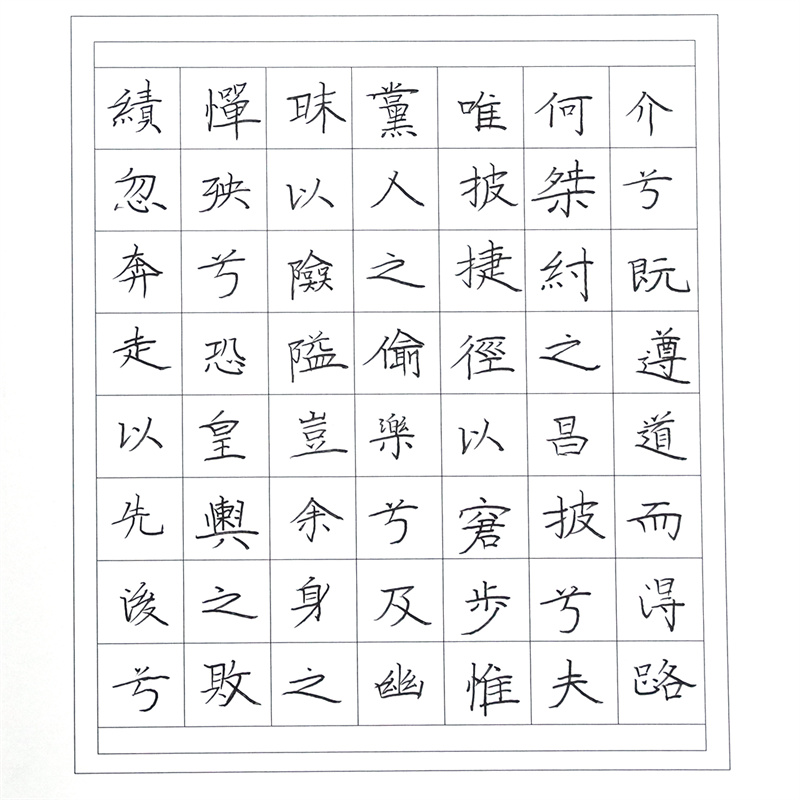 介兮既遵道而得路
何桀紂之昌披兮夫
唯披捷徑以窘步惟
黨人之偷樂兮及幽
昧以險隘豈余身之
憚殃兮恐皇輿之敗
績忽奔走以先後兮